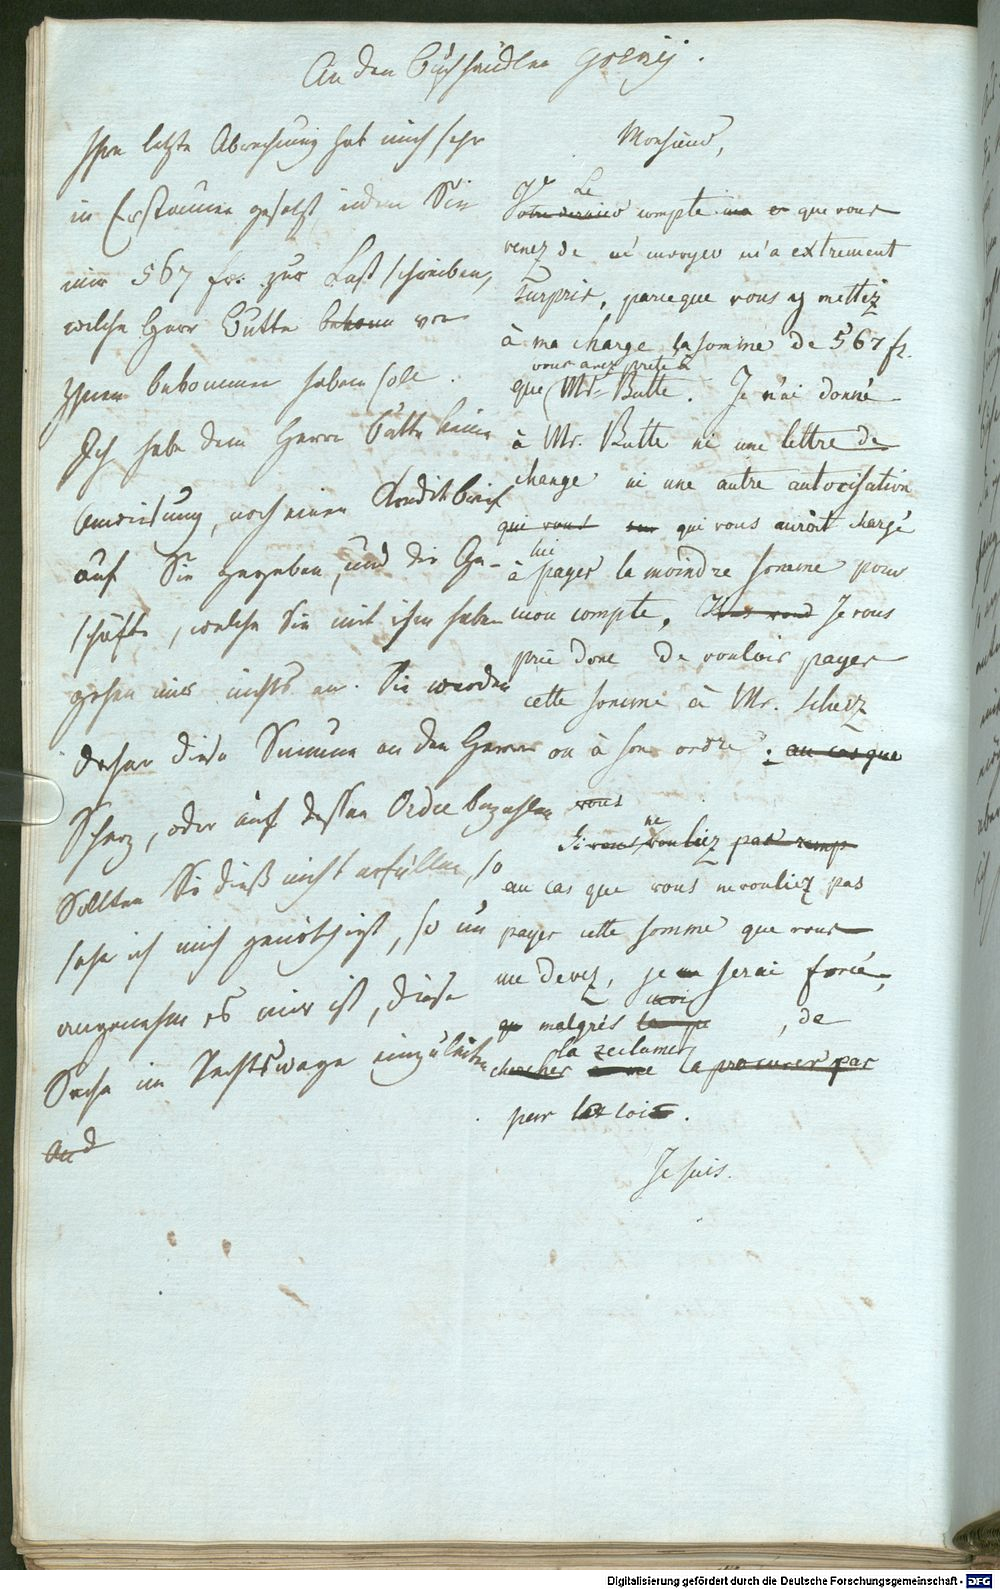 An den Buchhändler Goeury.
Ihre letzte Abrechnung hat mich sehr
in Erstaunen gesetzt, indem Sie
mir 567 fr. zur Last schreiben,
welche Herr Butte bekomm von
Ihnen bekommen haben soll.
Ich habe dem Herrn Butte keine
Anweisung, noch einen Kreditbrief
auf Sie gegeben, und die Ge-
schäfte, welche Sie mit ihm haben
gehen mir nichts an. Sie werden
daher diese Summe an den Herrn
Scherz, oder auf dessen Ordre bezahlen
Sollten Sie dieß nicht erfüllen, so
sehe ich mich genöthigt, so un
angenehm es mir ist, diese
Sache im Rechtswege einzuleiten
und
Monsieur,
Le
Votre dernier compte que vous
venez de m'envoyer m'a extrement
surpris, parceque vous y mettez
à ma charge la somme de 567 fr.
vous avez preté à
que Mr. Butte. Je n'ai donné
à Mr. Butte ni une lettre de
change ni une autre autorisation
qui vous qui vous auroit chargé
lui
à payer la moindre somme pour
mon compte. Je vous
prie donc de vouloir payer
cette somme à Mr. Scherz
ou à son ordre. au cas que
vous
ne
Si vous vouliez pas remp
au cas que vous ne vouliez pas
payer cette somme que vous
me devez, je serai forcé,
moi
malgrés , de
la reclamer
chercher la procurer par
par loi.
Je suis.
Digitalisierung gefördert durch die Deutsche Forschungsgemeinschaft - DFG